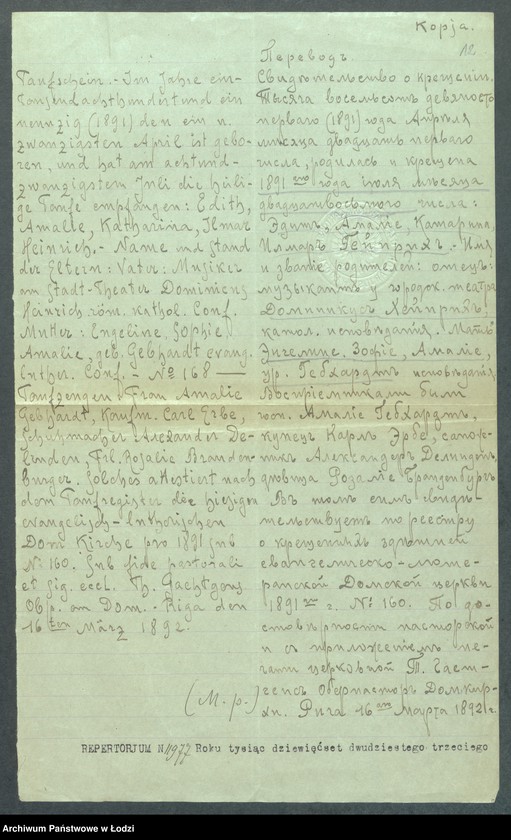 Kopja.
12
Taufschein. - Im Jahre ein-
tausendachthundertund ein
neunzig (1891) den ein u.
zwanzigsten April ist gebo-
ren, und hat am achtund-
zwanzigstem Juli die heili-
ge Taufe empfangen: Edith,
Amalie, Katharina, Ilmar
Heinrich. - Name und Stand
der Eltern: Vater: Musiker
am Stadt-Theater Dominicus
Heinrich röm. kathol. Conf.
Mutter: Engeline, Sophie,
Amalie, geb. Gebhardt evang.
luther. Conf. - No 168 -
Taufzeugen: Frau Amalie
Gebhardt, Kaufm. Carl Erbe,
Schuhmacher Alexander De-
linden, Frl. Rosalie Branden-
burger. Solches attestiert nach
dem Taufregister die hiesigen
evangelisch-lutherischen
Dom Kirche pro 1891 sub
No 160. Sub fide pastorali
et sig. eccl. Th. Gaehtgens
Obp. am Dom. - Riga den
16ten März 1892.
Переводъ.
Свидѣтельство о крещеніи.
Тысяча восемьсотъ девяносто
перваго (1891) года Апрѣля
мѣсяца двадцать перваго
числа, родилась и крещена
1891 его года іюля мѣсяца
двадцатьвосьмого числа:
Эдитъ, Амаліе, Катарина,
Илмаръ Гейнрихъ. - Имя
и званіе родителей: отецъ:
музыкантъ у городск. театра
Доминикусъ Хейнрихъ,
катол. исповѣданія. Мать
Энгелине, Зофіе, Амаліе,
ур. Гебхардтъ исповѣданія
Воспріемниками были
гсж. Амаліе Гебхардтъ,
купецъ Карлъ Эрбе, сапож-
никъ Александеръ Делинденъ,
дѣвица Розаліе Бранденбургъ
Въ томъ симъ свидѣ-
тельствуетъ по реестру
о крещеніяхъ здѣшней
евангелическо-люте-
ранской Домской церкви
1891 го г. № 160. По до-
стовѣрности пасторской
и съ приложеніемъ пе-
чати церковной Т. Гает-
генсъ Оберпасторъ Домкир-
хи. Рига 16 го Марта 1892 г.
(М. р.)
REPERTORJUM N 11977 Roku tysiąc dziewięćset dwudziestego trzeciego
Archiwum Państwowe w Łodzi